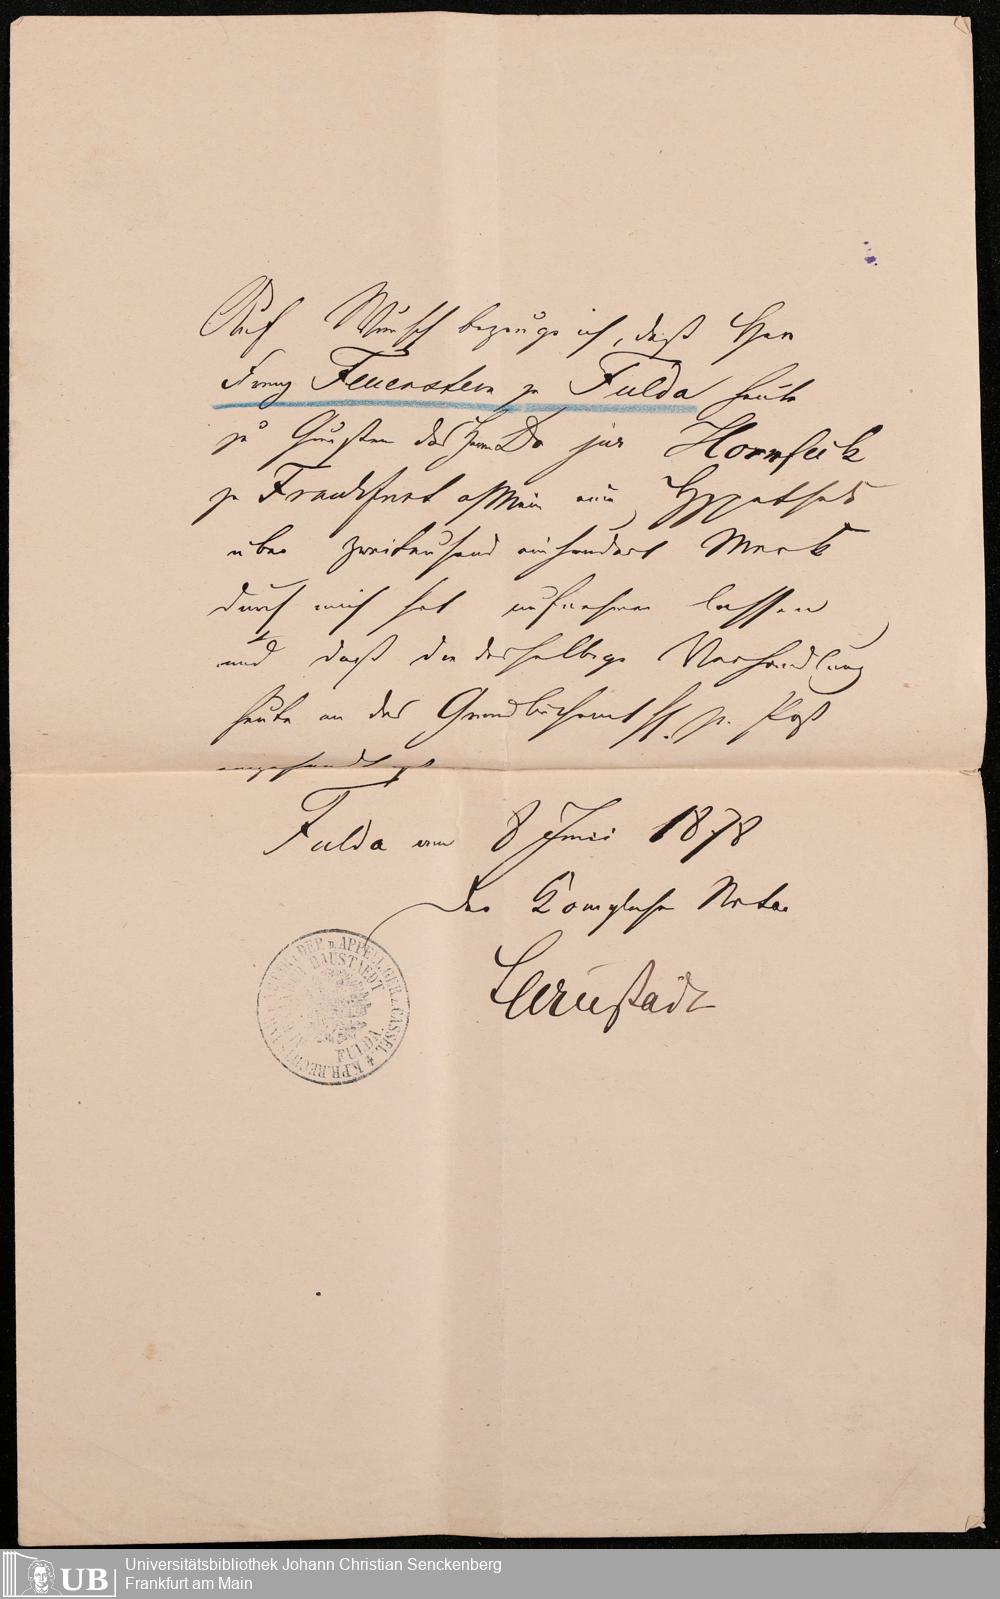 Auf Wunsch bezeuge ich, daß Herr
Franz Feuerstein zu Fulda heute
zu Gunsten des Herrn Dr jur Hornfeck
zu Frankfurt a/Main eine Hypothek
über zweitausend einhundert Mark
durch mich hat aufnehmen lassen
und daß die desfallsige Verhandlung
heute an das Grundbuchamt hs. p. Post
Fulda am 8 Juni 1878
Der Königliche Notar
FULDA
UB
Universitätsbibliothek Johann Christian Senckenberg
Frankfurt am Main